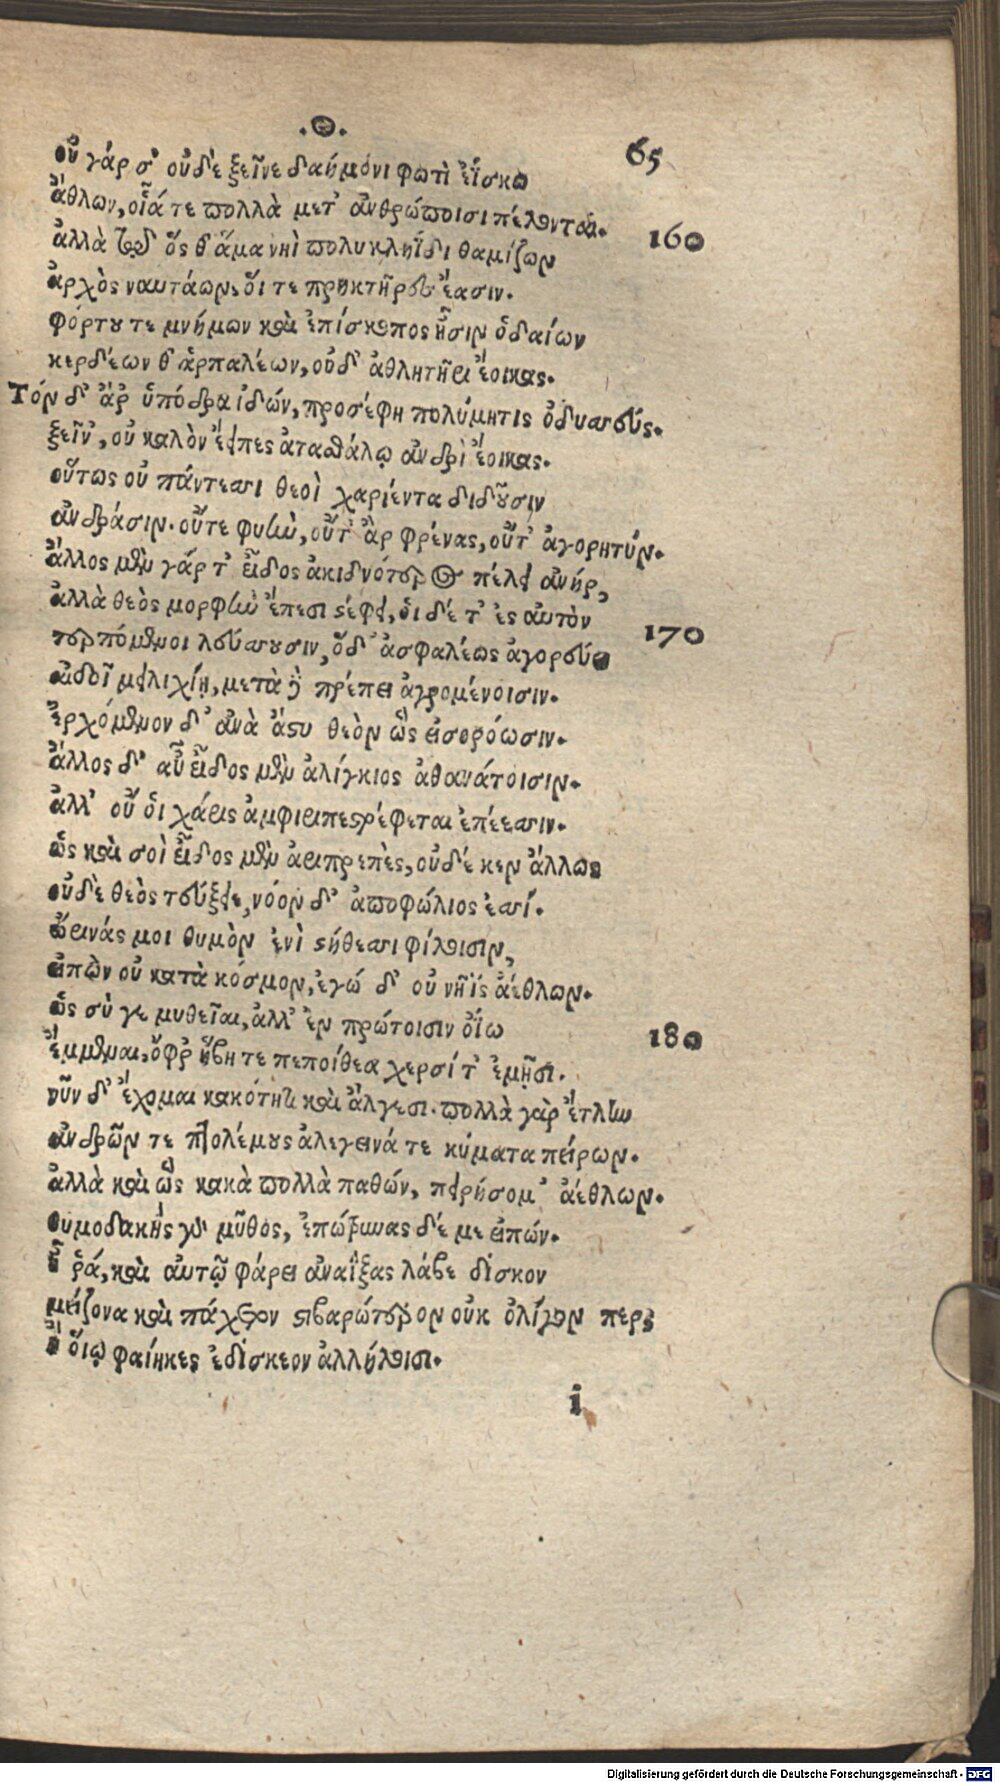 .Θ.
65
οὐ γάρ σ' οὐδὲ ξεῖνε δαήμονι φωτὶ ἐΐσκω
ἄθλων, οἷά τε πολλὰ μετ' ἀνθρώποισι πέλονται. 160
ἀλλὰ τῷ ὅς θ' ἅμα νηῒ πολυκληΐδι θαμίζων
ἀρχὸς ναυτάων, οἵ τε πρηκτῆρες ἔασιν.
φόρτου τε μνήμων καὶ ἐπίσκοπος ᾖσιν ὁδαίων
κερδέων θ' ἁρπαλέων, οὐδ' ἀθλητῆρι ἔοικας.
Τὸν δ' ἄρ' ὑπόδρα ἰδών, προσέφη πολύμητις ὀδυσσεύς.
ξεῖν', οὐ καλὸν ἔειπες ἀτασθάλῳ ἀνδρὶ ἔοικας.
οὕτως οὐ πάντεσσι θεοὶ χαρίεντα διδοῦσιν
ἀνδράσιν. οὔτε φυὴν, οὔτ' ἂρ φρένας, οὔτ' ἀγορητύν.
ἄλλος μὲν γάρ τ' εἶδος ἀκιδνότερος πέλει ἀνήρ,
ἀλλὰ θεὸς μορφὴν ἔπεσι στέφει, οἱ δέ τ' ἐς αὐτὸν 170
τερπόμενοι λεύσσουσιν, ὅδ' ἀσφαλέως ἀγορεύει
αἰδοῖ μειλιχίῃ, μετὰ δὲ πρέπει ἀγρομένοισιν.
ἐρχόμενον δ' ἀνὰ ἄστυ θεὸν ὣς εἰσορόωσιν.
ἄλλος δ' αὖ εἶδος μὲν ἀλίγκιος ἀθανάτοισιν.
ἀλλ' οὔ οἱ χάρις ἀμφιπεριστρέφεται ἐπέεσσιν.
ὣς καὶ σοὶ εἶδος μὲν ἀριπρεπὲς, οὐδέ κεν ἄλλως
οὐδὲ θεὸς τεύξειε, νόον δ' ἀποφώλιος ἐσσί.
ὤρινάς μοι θυμὸν ἐνὶ στήθεσσι φίλοισιν,
εἰπὼν οὐ κατὰ κόσμον, ἐγώ δ' οὐ νῆϊς ἀέθλων.
ὡς σύ γε μυθεῖαι, ἀλλ' ἐν πρώτοισιν ὀΐω 180
ἔμμεναι, ὄφρ' ἥβῃ τε πεποίθεα χερσί τ' ἐμῇσι.
νῦν δ' ἔχομαι κακότητι καὶ ἄλγεσι. πολλὰ γὰρ ἔτλην
ἀνδρῶν τε πτολέμους ἀλεγεινά τε κύματα πείρων.
ἀλλὰ καὶ ὣς κακὰ πολλὰ παθών, πειρήσομ' ἀέθλων.
θυμοδακὴς γὰρ μῦθος, ἐπώτρυνας δέ με εἰπών.
ἦ ῥά, καὶ αὐτῷ φάρει ἀναΐξας λάβε δίσκον
μείζονα καὶ πάχετον στιβαρώτερον οὐκ ὀλίγον περ
ἢ οἵῳ φαίηκες ἐδίσκεον ἀλλήλοισι.
i
Digitalisierung gefördert durch die Deutsche Forschungsgemeinschaft - DFG